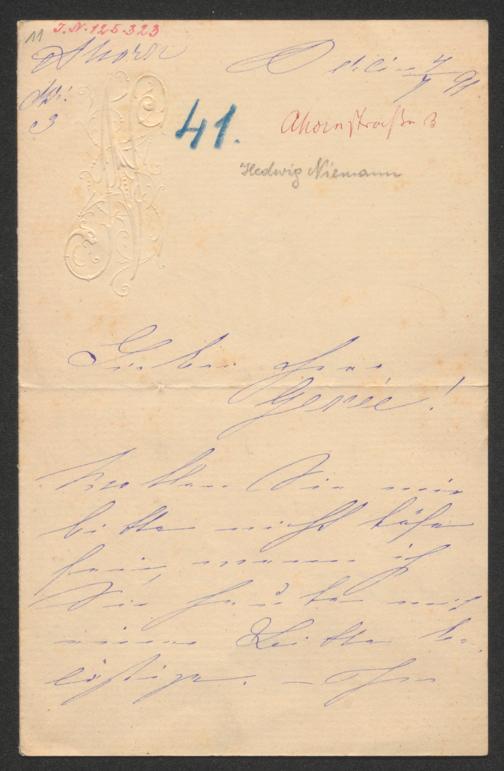 11 I.N. 125.323
Ahorn
Str.
3
Berlin 7/7 91
41.
Ahornstraße 3
Hedwig Niemann
Lieber Herr
Genée!
Wollen Sie mir
bitte nicht böse
sein, wenn ich
Sie heute mit
einer Bitte be-
lästige. – Ihr